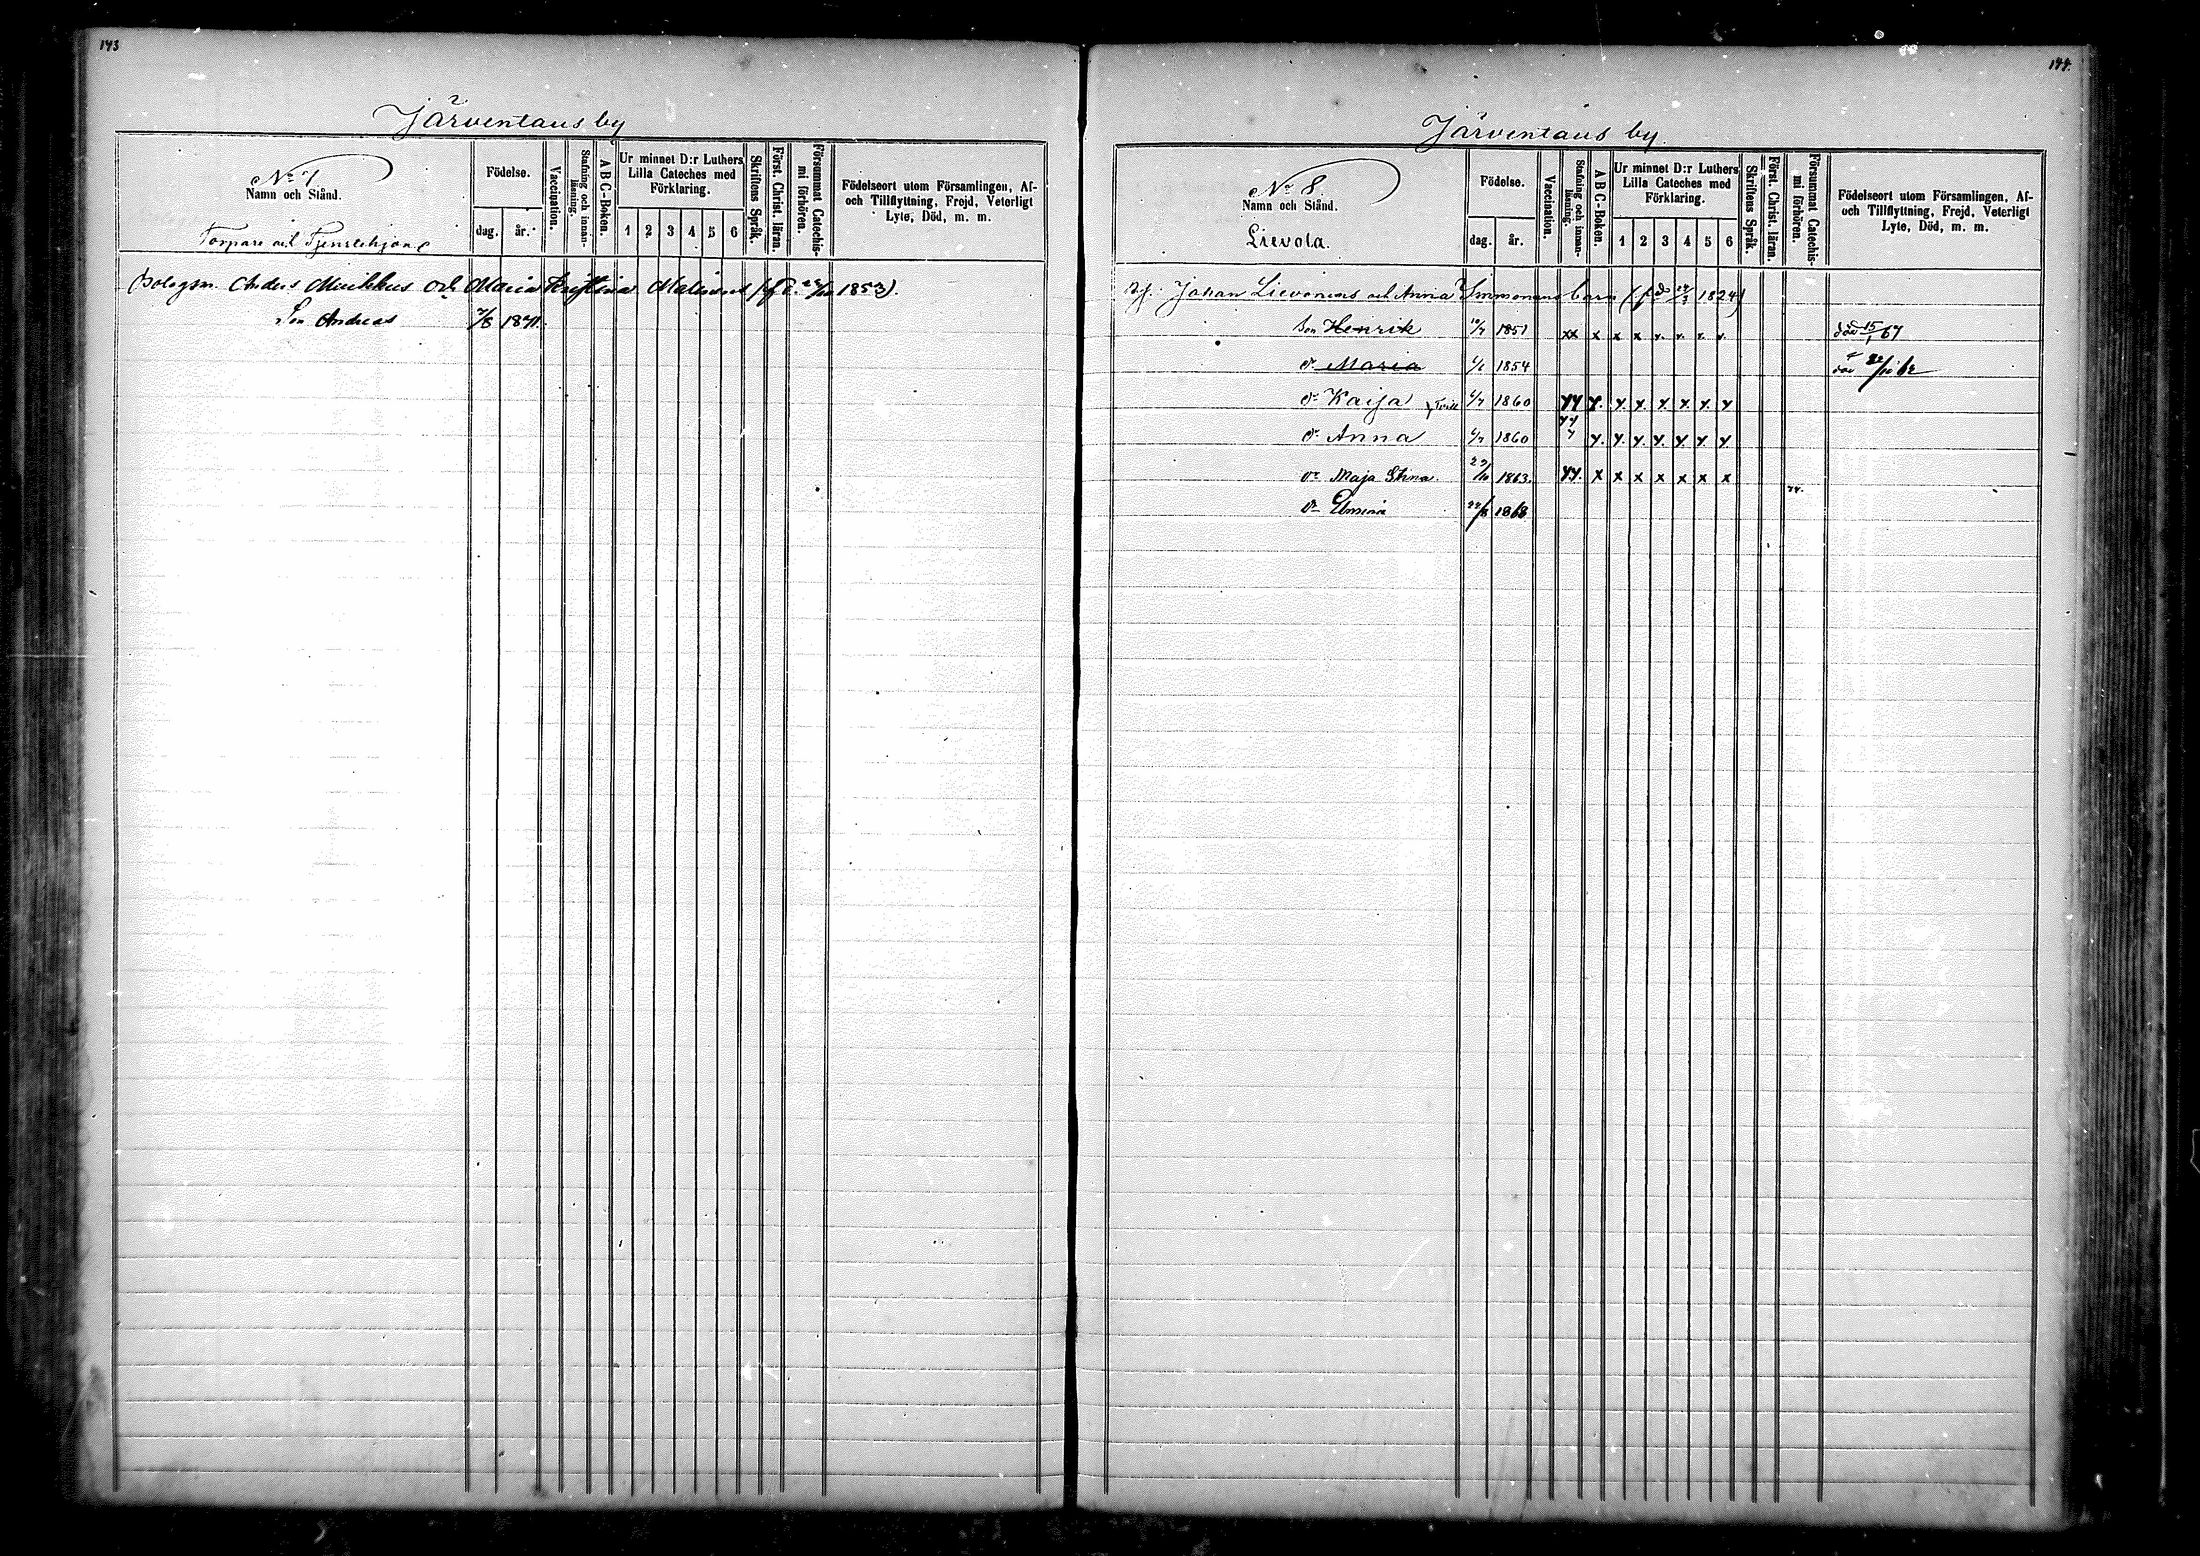 143
Järventaus by
No 7
Namn och Stånd.
Torpare och Tjenstehjone
Födelse.
dag. år.
Vaccination.
Stafning och innan-läsning.
A B C-Boken.
Ur minnet D:r Luthers
Lilla Cateches med
Förklaring.
1 2 3 4 5 6
Skriftens Språk.
Först. Christ. läran.
Försummat Catechis-
mi förhören.
Födelseort utom Församlingen, Af-
och Tillflyttning, Frejd, Veterligt
Lyte, Död, m. m.
Bolagsm. Anders Muikkus och Maria Kristina 1853).
Son Andreas 1871.
144.
Järventaus by.
No 8.
Namn och Stånd.
Lievola.
Födelse.
dag. år.
Vaccination.
Stafning och innan-
läsning.
A B C-Boken.
Ur minnet D:r Luthers
Lilla Cateches med
Förklaring.
1 2 3 4 5 6
Skriftens Språk.
Först. Christ. läran.
Försummat Catechis-
mi förhören.
Födelseort utom Församlingen, Af-
och Tillflyttning, Frejd, Veterligt
Lyte, Död, m. m.
Johan Lievonens och Anna Immonens barn 1824)
Son Henrik 1851 xx x x x x x x x död 15/1 67
dr Maria 1854 död
dr Kaija 1860
dr Anna 1860
dr Maja Stina 29/10 1863. x x x x x x x
dr Elmina 1868